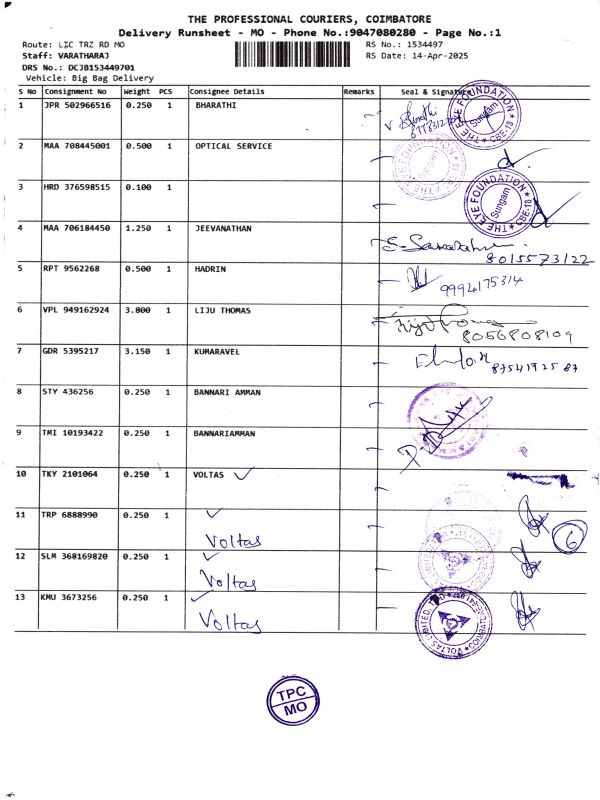 THE PROFESSIONAL COURIERS, COIMBATORE
Delivery Runsheet - MO - Phone No.:9047080280 - Page No.:1
Route: LIC TRZ RD MO RS No.: 1534497
Staff: VARATHARAJ RS Date: 14-Apr-2025
DRS No.: DCJB153449701
Vehicle: Big Bag Delivery
S No Consignment No Weight PCS Consignee Details Remarks Seal & Signature
1 JPR 502966516 0.250 1 BHARATHI
THE EYE FOUNDATION Sungam CBE-18
2 MAA 708445001 0.500 1 OPTICAL SERVICE
3 HRD 376598515 0.100 1
THE EYE FOUNDATION Sungam CBE-18
4 MAA 706184450 1.250 1 JEEVANATHAN
8015573122
5 RPT 9562268 0.500 1 HADRIN
9994175314
6 VPL 949162924 3.800 1 LIJU THOMAS
8056808109
7 GDR 5395217 3.150 1 KUMARAVEL
8 STY 436256 0.250 1 BANNARI AMMAN
9 TMI 10193422 0.250 1 BANNARIAMMAN
10 TKY 2101064 0.250 1 VOLTAS
11 TRP 6888990 0.250 1 Voltas 6
12 SLM 368169820 0.250 1 Voltas
13 KMU 3673256 0.250 1 Voltas
VOLTAS LIMITED
TPC
MO